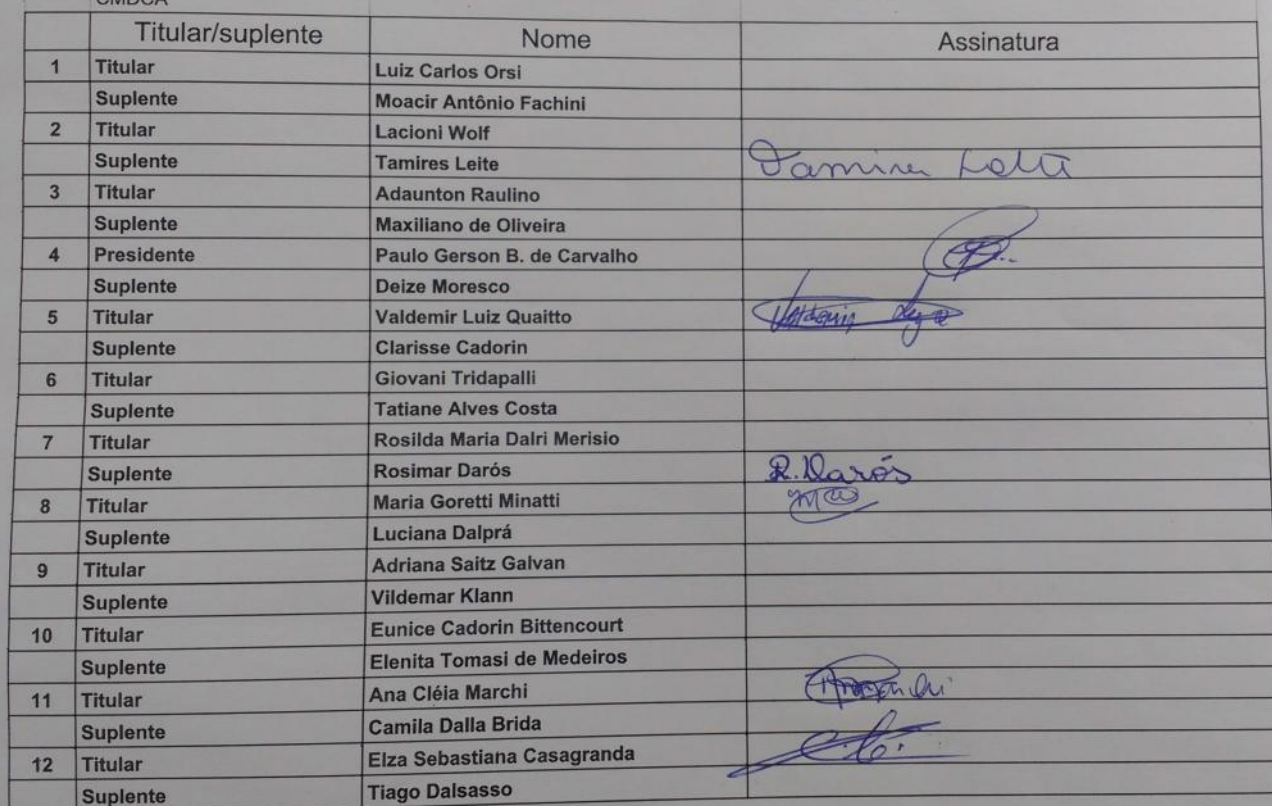 CMDCA
Titular/suplente Nome Assinatura
1 Titular Luiz Carlos Orsi
Suplente Moacir Antônio Fachini
2 Titular Lacioni Wolf
Suplente Tamires Leite Tamires Leite
3 Titular Adaunton Raulino
Suplente Maxiliano de Oliveira
4 Presidente Paulo Gerson B. de Carvalho
Suplente Deize Moresco
5 Titular Valdemir Luiz Quaitto
Suplente Clarisse Cadorin
6 Titular Giovani Tridapalli
Suplente Tatiane Alves Costa
7 Titular Rosilda Maria Dalri Merisio
Suplente Rosimar Darós R. Darós
8 Titular Maria Goretti Minatti
Suplente Luciana Dalprá
9 Titular Adriana Saitz Galvan
Suplente Vildemar Klann
10 Titular Eunice Cadorin Bittencourt
Suplente Elenita Tomasi de Medeiros
11 Titular Ana Cléia Marchi
Suplente Camila Dalla Brida
12 Titular Elza Sebastiana Casagranda
Suplente Tiago Dalsasso